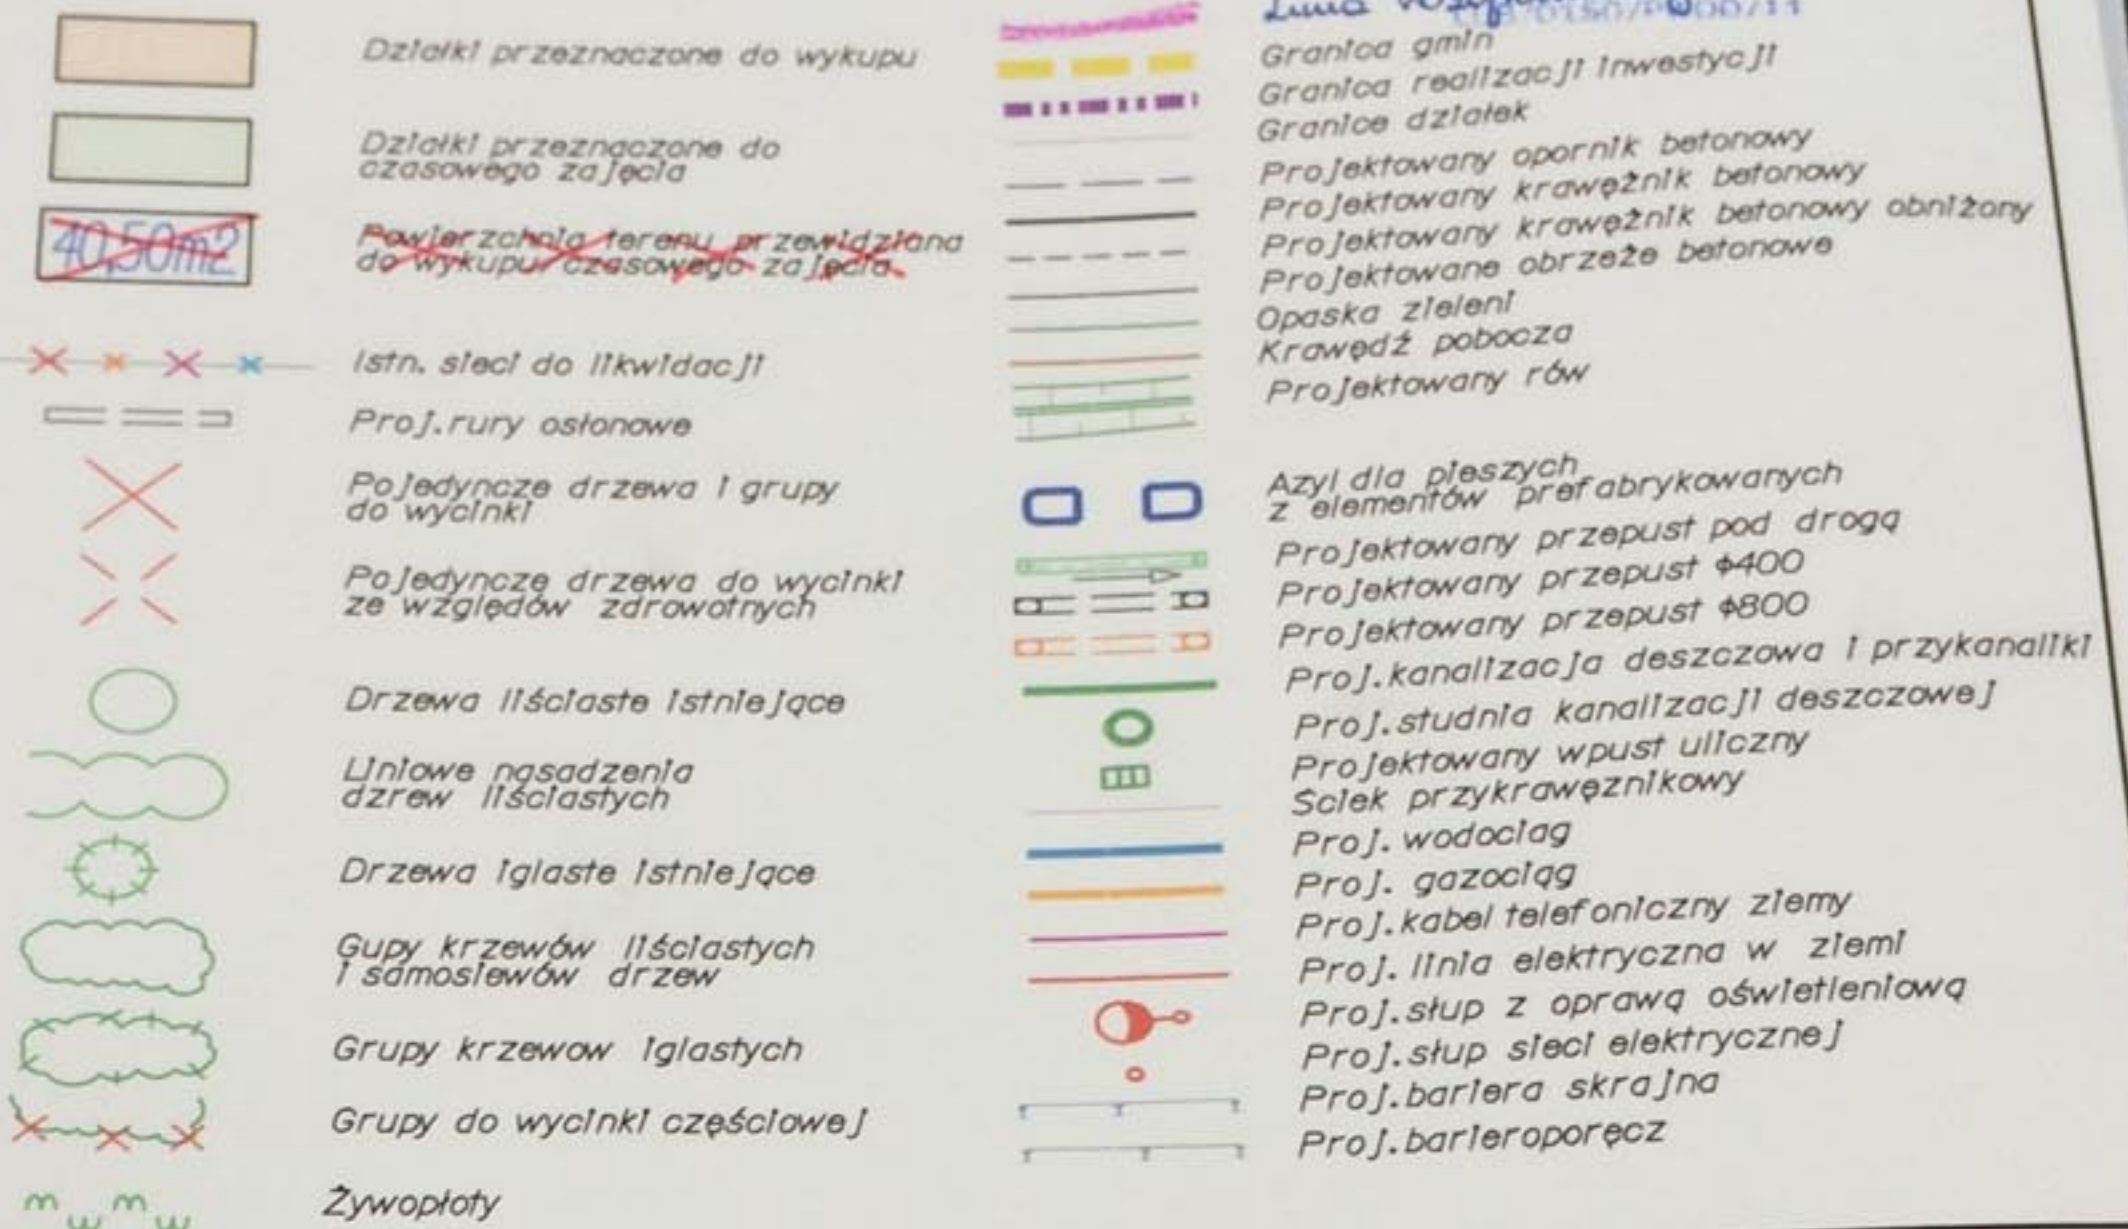 Działki przeznaczone do wykupu
Działki przeznaczone do
czasowego zajęcia
40,50m2
Powierzchnia terenu przewidziana
do wykupu/czasowego zajęcia
Istn. sieci do likwidacji
Proj.rury osłonowe
Pojedyncze drzewa i grupy
do wycinki
Pojedyncze drzewa do wycinki
ze względów zdrowotnych
Drzewa liściaste istniejące
Liniowe nasadzenia
dzrew liściastych
Drzewa iglaste istniejące
Gupy krzewów liściastych
i samosiewów drzew
Grupy krzewow iglastych
Grupy do wycinki częściowej
Żywopłoty
Linia
Granica gmin
Granica realizacji inwestycji
Granice działek
Projektowany opornik betonowy
Projektowany krawężnik betonowy
Projektowany krawężnik betonowy obniżony
Projektowane obrzeże betonowe
Opaska zieleni
Krawędź pobocza
Projektowany rów
Azyl dla pieszych
z elementów prefabrykowanych
Projektowany przepust pod drogą
Projektowany przepust Φ400
Projektowany przepust Φ800
Proj.kanalizacja deszczowa i przykanaliki
Proj.studnia kanalizacji deszczowej
Projektowany wpust uliczny
Ściek przykrawęznikowy
Proj. wodociag
Proj. gazociąg
Proj.kabel telefoniczny ziemy
Proj. linia elektryczna w ziemi
Proj.słup z oprawą oświetleniową
Proj.słup sieci elektrycznej
Proj.bariera skrajna
Proj.barieroporęcz